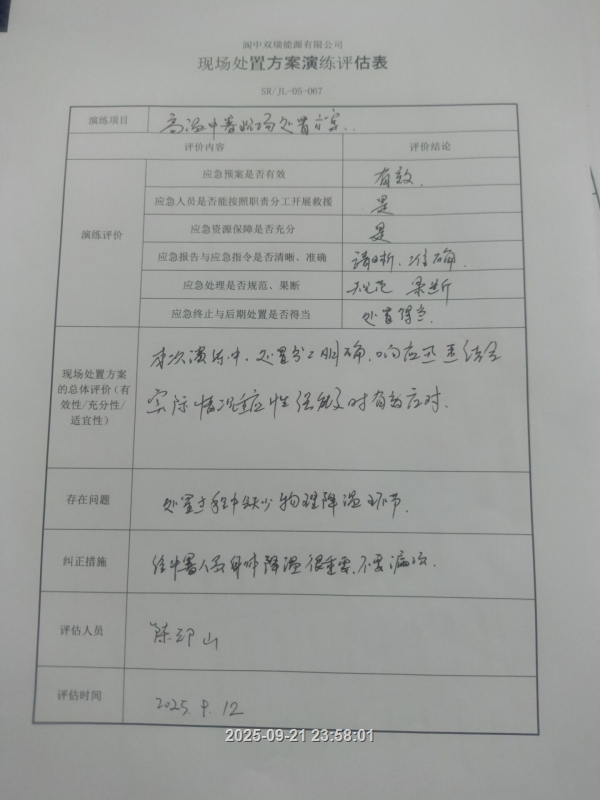 阆中双瑞能源有限公司
现场处置方案演练评估表
SR/JL-05-067
演练项目 高温中暑现场处置方案
评价内容 评价结论
演练评价
应急预案是否有效 有效.
应急人员是否能按照职责分工开展救援 是
应急资源保障是否充分 是
应急报告与应急指令是否清晰、准确 清晰、准确.
应急处理是否规范、果断 规范 果断
应急终止与后期处置是否得当 处置得当.
现场处置方案的总体评价(有效性/充分性/适宜性)
本次演练中,处置分工明确,响应迅速结合
实际情况适应性强能及时有效应对.
存在问题 处置过程中缺少物理降温环节.
纠正措施 给中暑人员身体降温很重要,不要漏项.
评估人员 陈邦山
评估时间 2025.9.12
2025-09-21 23:58:01